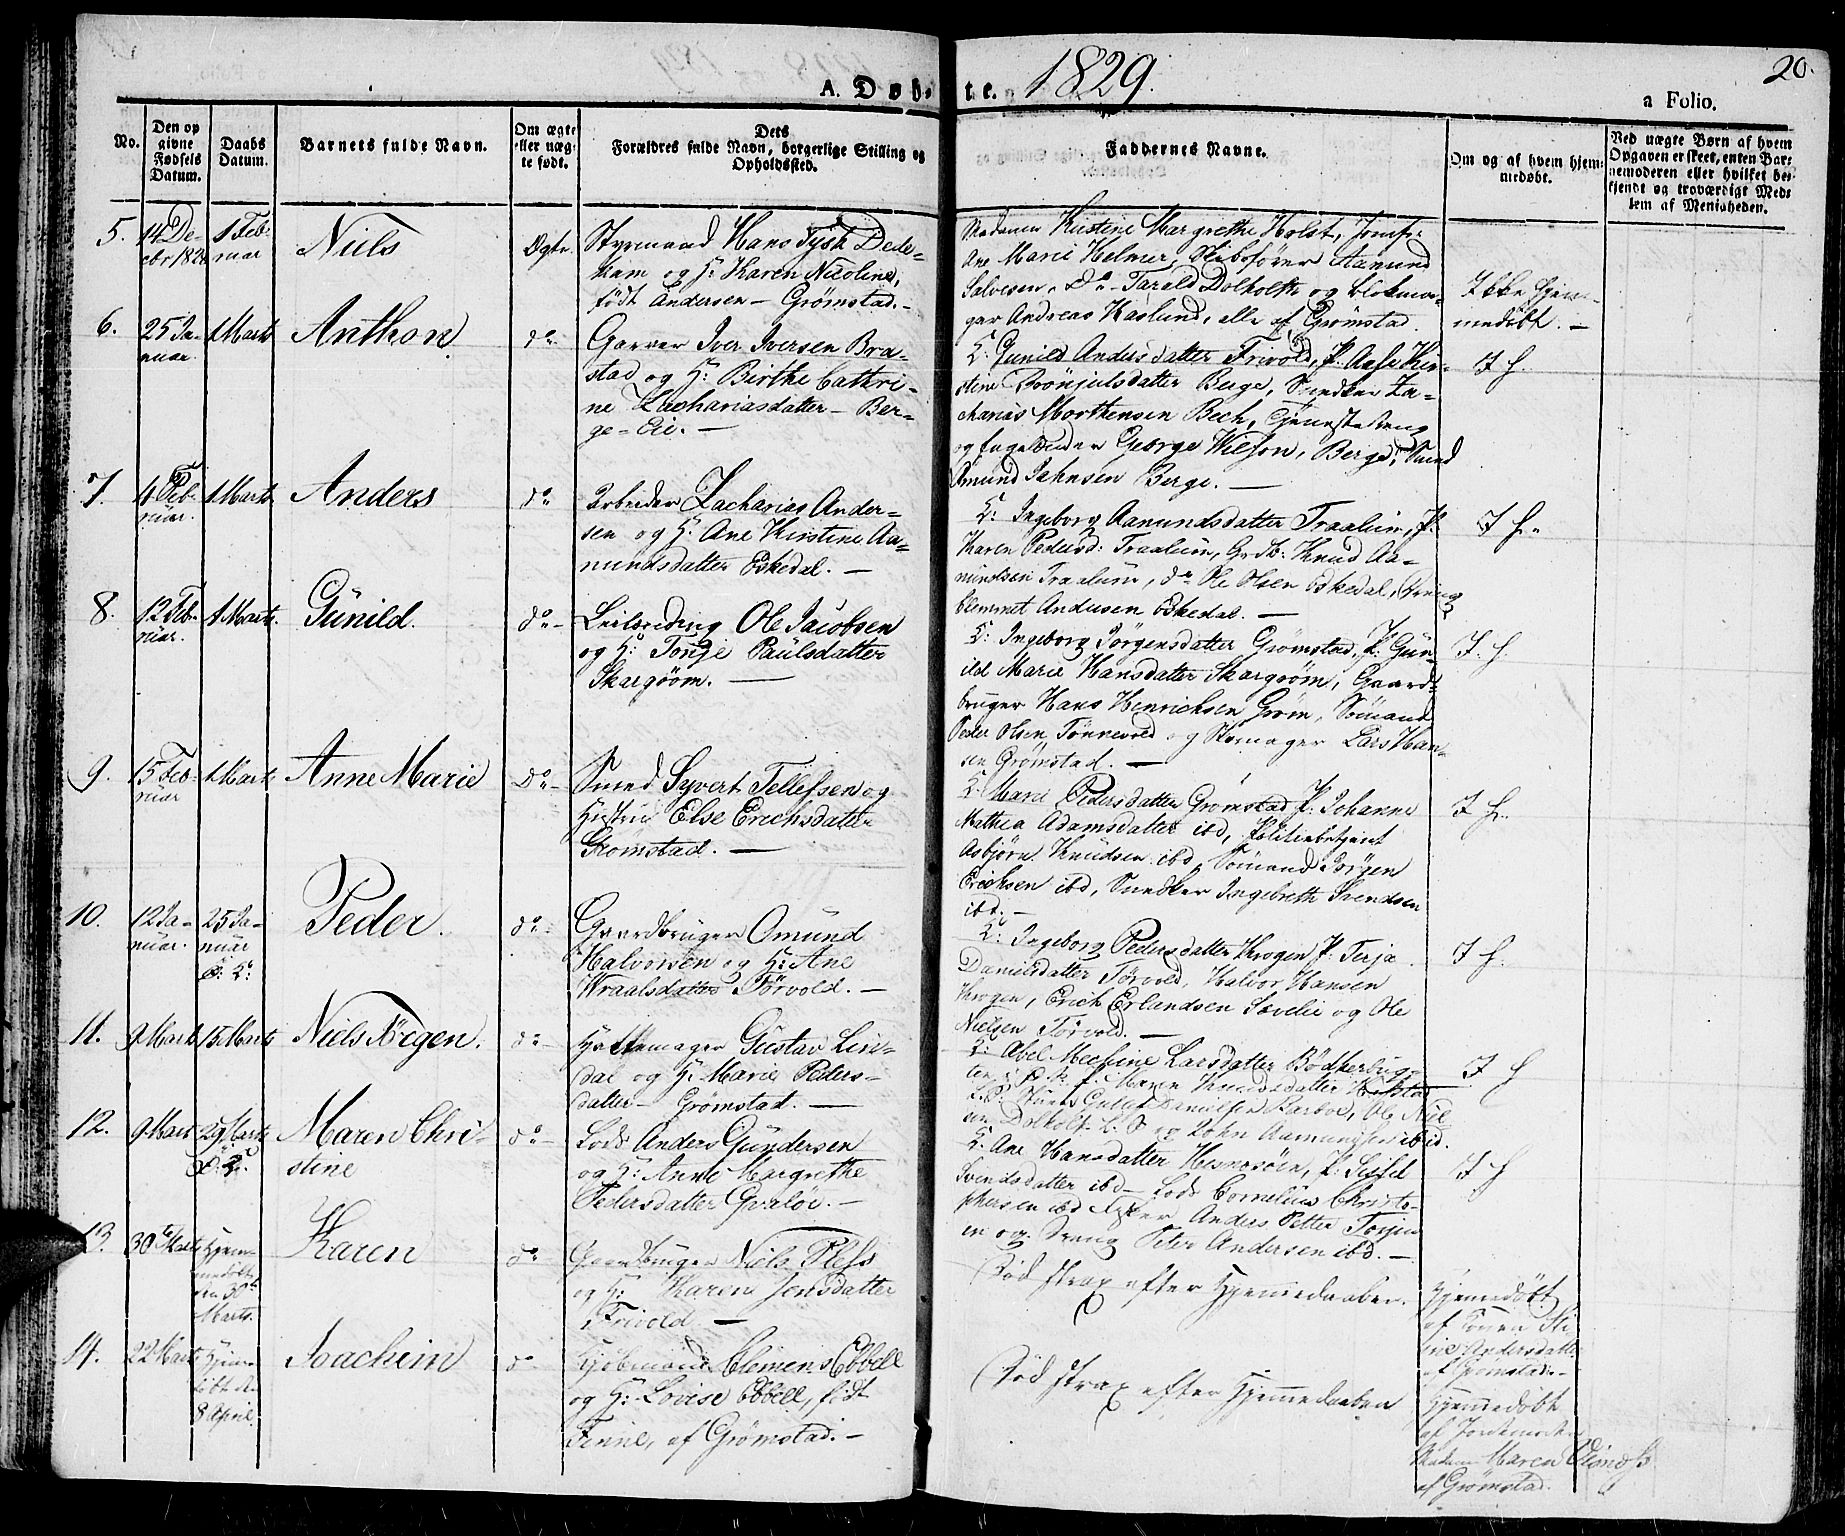 1829.
20.
A. Døbte.
a Folio.
No.
Den op
givne
Fødsels
Datum.
Daabs
Datum.
Barnets fulde Navn.
Om ægte
eller uæg-
te født.
Dets
Forældres fulde Navn, borgerlige Stilling og
Opholdssted.
Faddernes Navne.
Om og af hvem hjem-
medøbt.
Ved uægte Børn af hvem
Opgaven er skeet, enten Bar-
nemoderen eller hvilket be-
kjendt og troværdigt Med-
lem af Menigheden.
5.
14 De-
cbr 1828
1 Feb-
ruar
Niels
Ægte
Styrmand Hans Tysk Dede-
kam og H: Karen Nicoline,
født Andersen - Grømstad.-
Madame Kistine Margrethe Holst, Jomfr.
Ane Marie Helmer, Skibsfører Aamund
Salvesen, Do Tarald Dolholt og Blokma-
ger Andreas Haslund, alle af Grømstad.
Ikke Hjem-
medøbt. -
6.
25 Ja-
nuar.
1 Marts
Anthon.
do
Garver Iver Iversen Bra-
stad og H: Birthe Cathri-
ne Zachariasdatter - Ber-
ge-Eie. -
K: Gunild Andersdatter Frivold, P. Aase Kir-
stine Brönjulsdatter Berge, Snedker Za-
charias Morthensen Bech, Tjenestedreng
George Wilson, Berge, Smed
Omund Jahnsen Berge. -
I H.
7.
4 Feb-
ruar.
1 Marts
Anders
do
Arbeider Zacharias Ander-
sen og H: Ane Kirstine Aa-
mundsdatter Eskedal. -
K: Ingeborg Aamundsdatter Traalum, P:
Karen Pedersd: Traalum, Grb: Knud Aa-
mundsen Traalum, do Ole Olsen Eskedal, Dreng
Clemmet Andersen Eskedal. -
I H.
8.
12 Feb-
ruar.
1 Marts
Gunild.
do -
Leilænding Ole Jacobsen
og H: Tonje Paulsdatter
Skargrøm. -
K: Ingeborg Jörgensdatter Grømstad, P: Gun-
ild Marie Hansdatter Skargrøm, Gaard-
bruger Hans Henrichsen Grøm, Sömand
Peder Olsen Tønnevold og Skomager Lars Han-
sen Grømstad. -
I. H.
9.
15 Feb-
ruar
1 Marts
Anne Marie
Do -
Smed Syvert Tellefsen og
Hustrue Else Erichsdatter
Grømstad. -
K. Marie Pedersdatter Grømstad, P. Johanne
Mathea Adamsdatter ibd, Politiebetjent
Asbjørn Knudsen ibd, Sømand Jörgen
Erichsen ibd, Snedker Ingebreth Svendsen
ibd. -
I H.
10.
12 Ja-
nuar.
25 Ja-
nuar
Peder.
do
Gaardbruger Omund
Halvorsen og H: Ane
Wraalsdatter Tørvold. -
K: Ingeborg Pedersdatter Krogen, P. Terja
Danielsdatter Törvold, Halvor Hansen
Krogen, Erich Erlandsen Sævelie og Ole
Nielsen Törvold. -
I H.
11.
9 Marts
15 Marts
Niels Jörgen.
do -
Hattemager Gustav Lin-
dal og H: Marie Peders-
datter - Grømstad. -
K: Abel Mechine Larsdatter Bödkerbug-
ten, P. Maren Knudsdatter
Danielsen Ole Niel-
sen Dolholt og John Aamundsen ibid.
I H
12.
9 Marts
29 Marts
Maren Chri-
stine
do -
Lods Anders Gundersen
og H: Anne Margrethe
Pedersdatter Qvaløe. -
K. Ane Hansdatter Hesnesöen, P: Sissel
Svendsdatter ibd - Lods Cornelius Christo-
phersen ibd Anders Petter Torjen
og Dreng Peter Andersen ibd. -
I H
13.
30te Marts
Hjem-
medøbt
den 30te
Marts.
Karen
do
Gaardbruger Niels Pless
og H: Karen Jensdatter
Frivold -
Död strax efter Hjemmedaaben.
Hjemedøbt
af Konen
Andersdatter
af Grømstad.-
14.
22 Marts
Hjem-
døbt den
8 April.
Joachein
do
Kjöbmand Clemen Ebbell
og H: Lovise Ebbell, født
Finne, af Grømstad. -
Död strax efter Hjemmedaaben
Hjemedøbt
af Jordemoder
Madame Maren
af Grømstad.